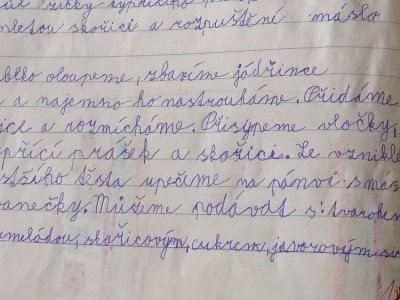 lžičky kypřícího
mletou skořici a rozpuštěné máslo
oloupeme, zbavíme jádřince
a najemno ho nastrouháme. Přidáme
a rozmícháme. Přisypeme vločky,
prášek a skořici. Ze vznikle
těsta upečeme na pánvi
Můžeme podávat s: tvarohem
skořicovým, cukrem, javorovým